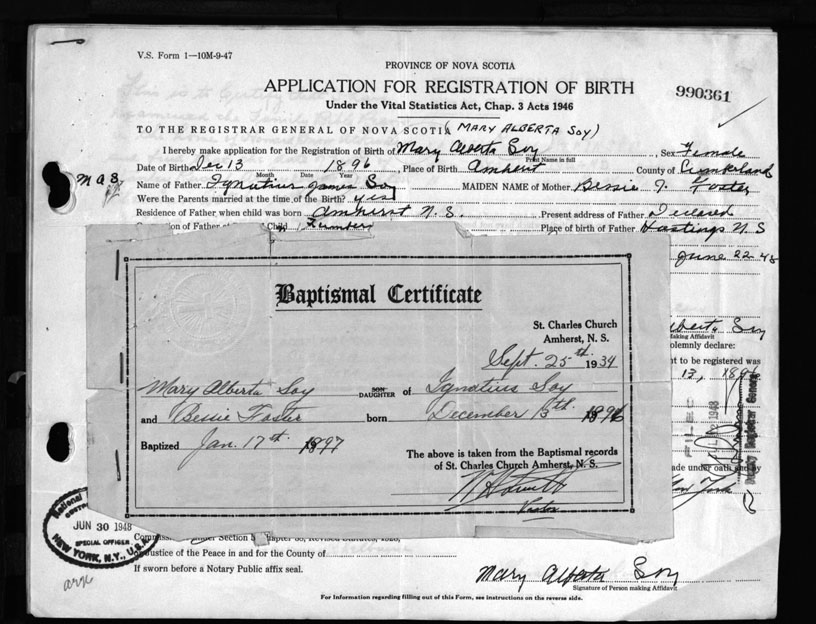 V.S. Form 1—10M-9-47
PROVINCE OF NOVA SCOTIA
APPLICATION FOR REGISTRATION OF BIRTH
990361
Under the Vital Statistics Act, Chap. 3 Acts 1946
TO THE REGISTRAR GENERAL OF NOVA SCOTIA (MARY ALBERTA SOY)
I hereby make application for the Registration of Birth of Mary Alberta Soy, Sex Female
Print Name in full
Date of Birth Dec 13 1896, Place of Birth Amherst County of Cumberland
Month Date Year
M A S
Name of Father Ignatius James Soy MAIDEN NAME of Mother Bessie J. Foster
Were the Parents married at the time of the Birth? yes
Residence of Father when child was born Amherst N.S. Present address of Father Deceased
of Father Child Place of birth of Father Hastings N S
June 22-48
Baptismal Certificate
St. Charles Church
Amherst, N. S.
Sept. 25th. 1934
Mary Alberta Soy SON DAUGHTER of Ignatius Soy
and Bessie Foster born December 13th. 1896
Baptized Jan. 17th 1897
The above is taken from the Baptismal records
of St. Charles Church Amherst, N. S.
Soy
Making Affidavit
olemnly declare:
nt to be registered was
13, 1896
1948
Deputy Registrar General
ade under oath and by
New York
JUN 30 1948
SPECIAL OFFICER
NEW YORK, N.Y., U.S.A.
Justice of the Peace in and for the County of
If sworn before a Notary Public affix seal.
Mary Alberta Soy
Signature of Person making Affidavit
For Information regarding filling out of this Form, see instructions on the reverse side.